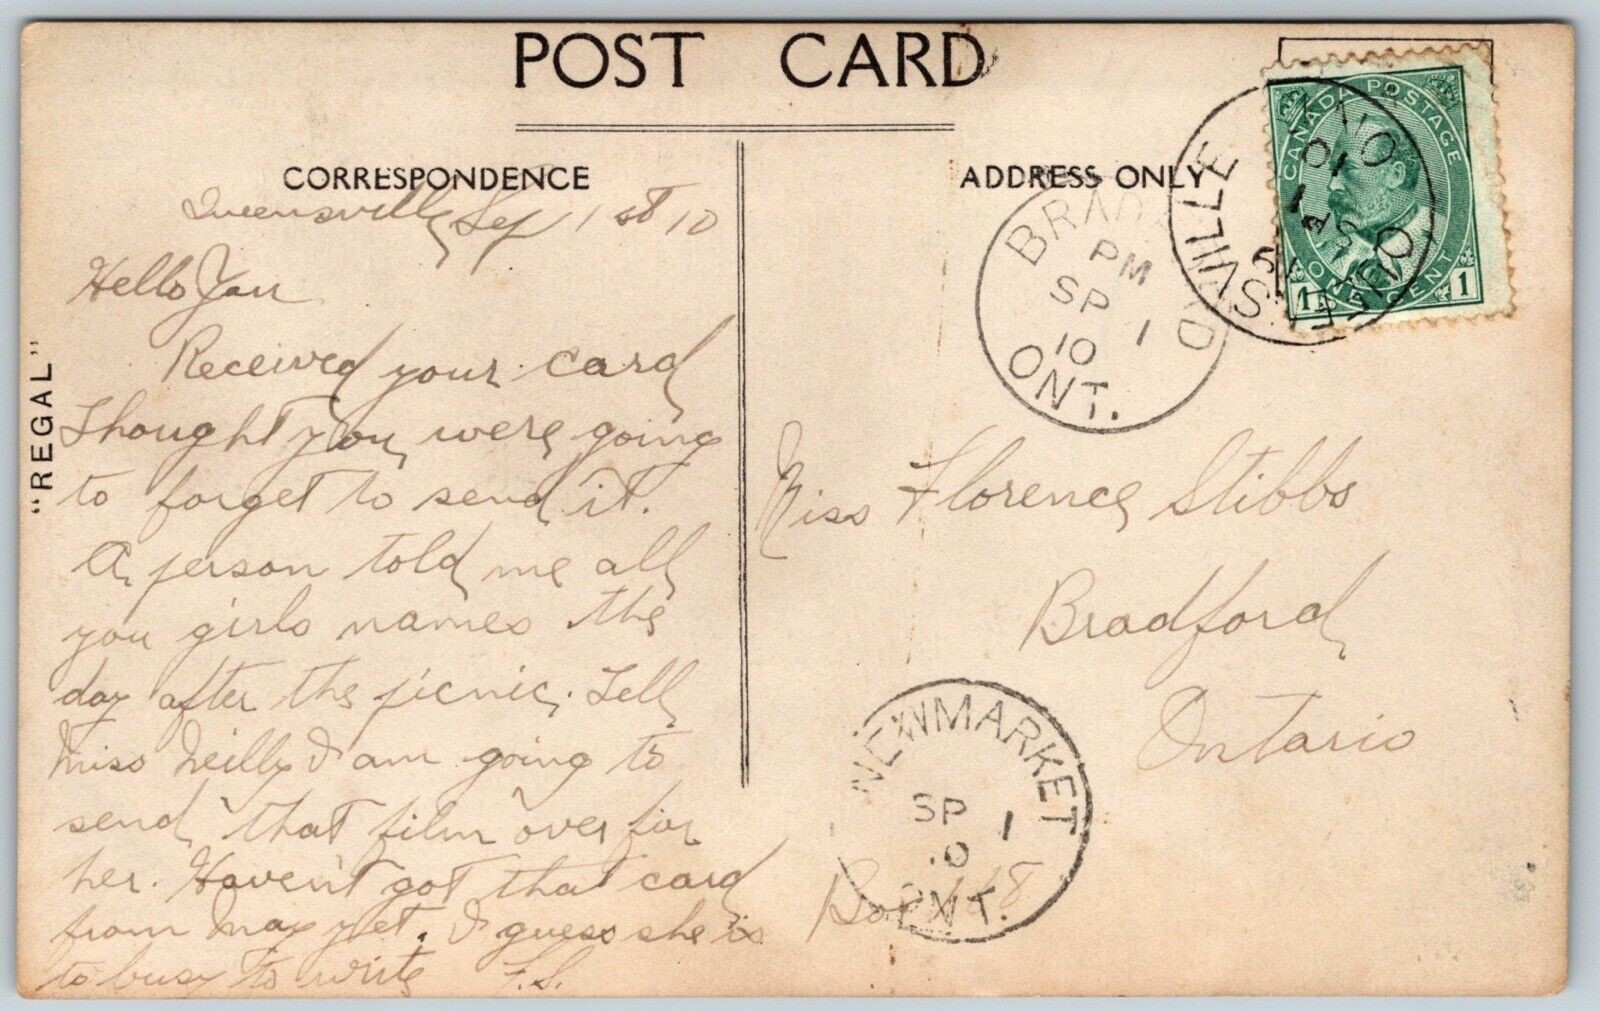 POST CARD
CORRESPONDENCE
ADDRESS ONLY
"REGAL"
Queensville Sep 1st 10
Hello
Received your card
Thought you were going
to forget to send it.
A person told me all
you girls names the
day after the picnic. Tell
Miss Neilly I am going to
send that film over for
her. Haven't got that card
from May yet. I guess she is
to busy to write F.S.
Miss Florence Stibbs
Bradford
Ontario
Box
BRADFORD
PM
SP 1
10
ONT.
QUEENSVILLE
ONT
SP 1
10
CANADA POSTAGE
ONE CENT
1 1
NEWMARKET
SP 1
10
ONT.